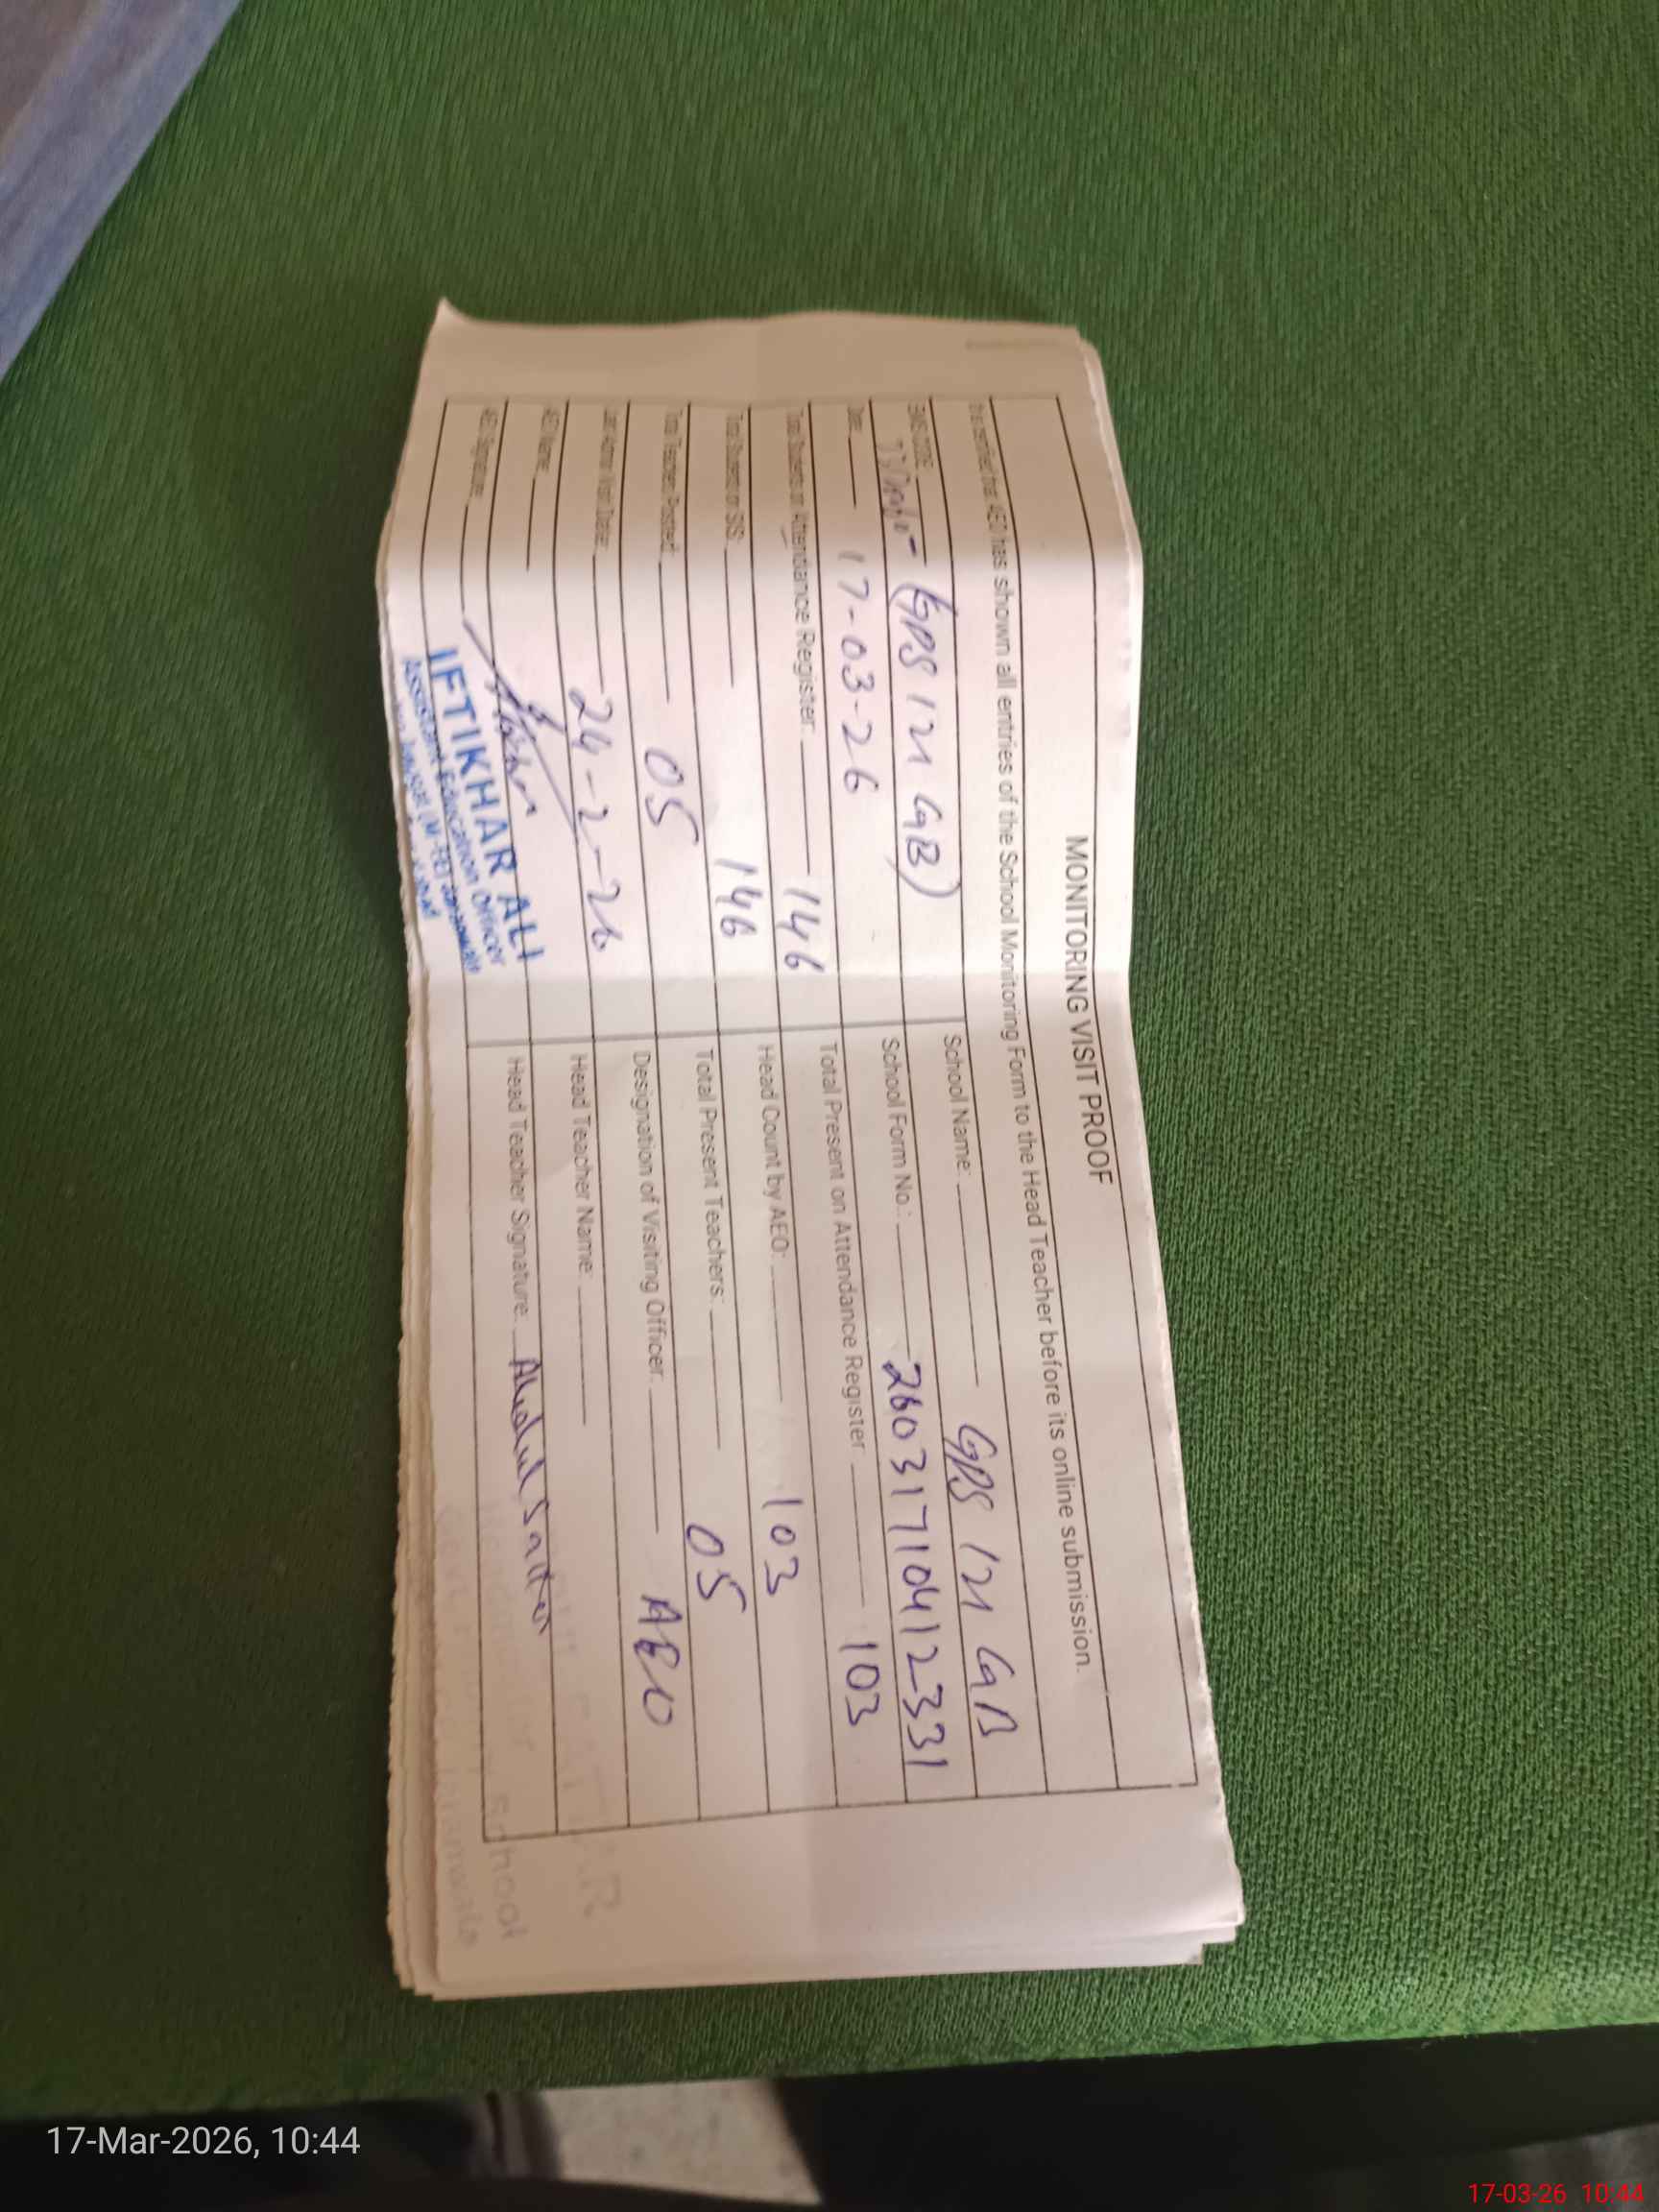 MONITORING VISIT PROOF
It is certified that AEO has shown all entries of the School Monitoring Form to the Head Teacher before its online submission.
EMIS CODE: (GPS 121 GB) School Name: GPS 121 GB
Date: 17-03-26 School Form No.: 26031710412331
Total Students on Attendance Register: 146 Total Present on Attendance Register 103
Total Students on SIS: 146 Head Count by AEO: 103
Total Teachers Posted: 05 Total Present Teachers: 05
Last Admn Visit Date: 24-2-26 Designation of Visiting Officer: AEO
AEO Name: Head Teacher Name:
AEO Signature: Head Teacher Signature: Abdul Sattar
IFTIKHAR ALI
Assistant Education Officer
17-Mar-2026, 10:44
17-03-26 10:44